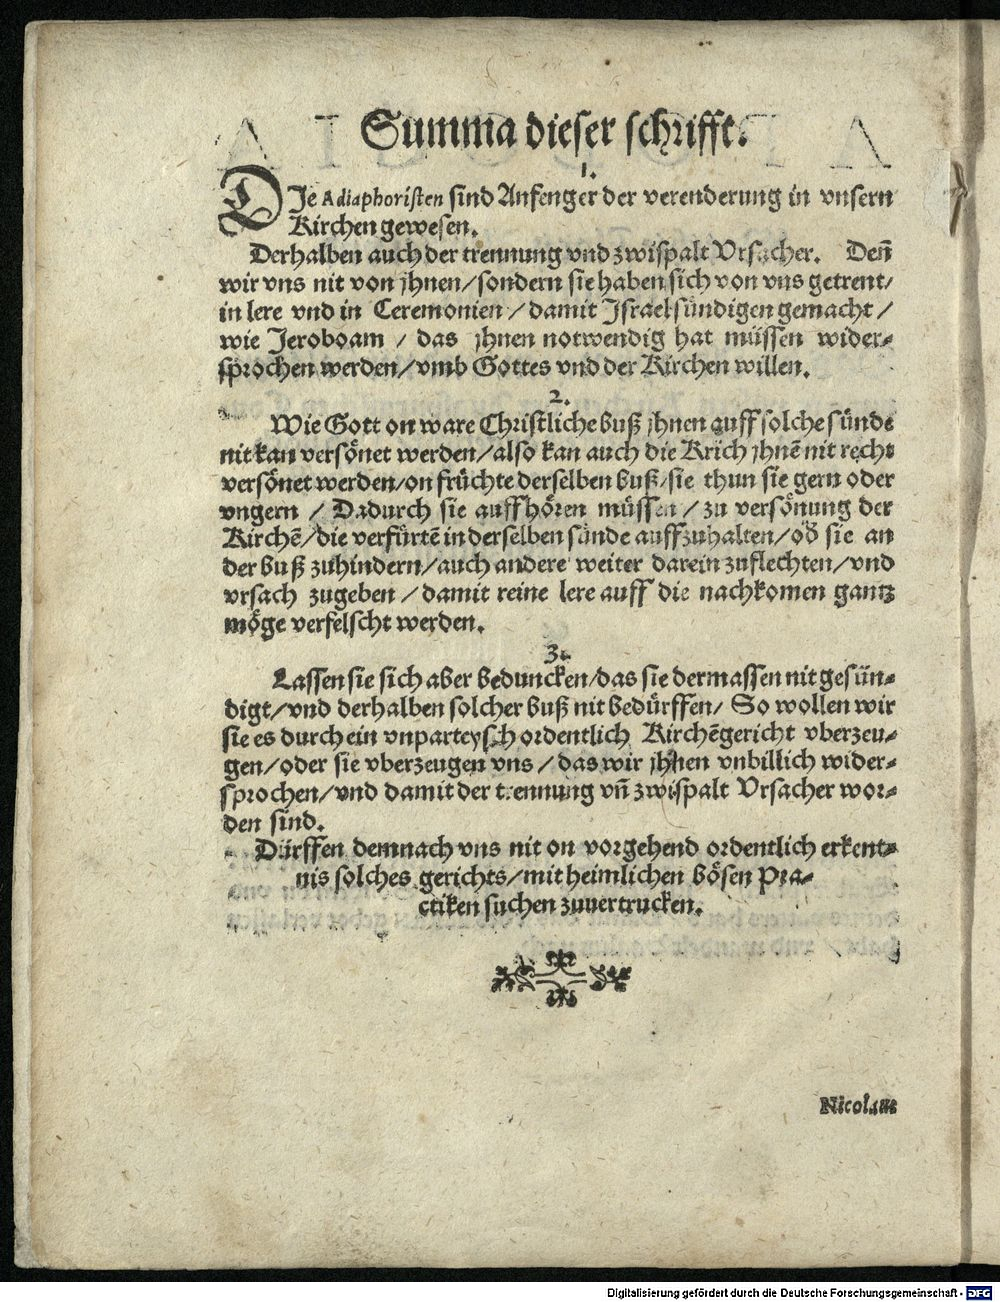 Summa dieser schrifft.
1.
DIe Adiaphoristen sind Anfenger der verenderung in vnsern
Kirchen gewesen.
Derhalben auch der trennung vnd zwispalt Vrsacher. Deñ
wir vns nit von jhnen/sondern sie haben sich von vns getrent/
in lere vnd in Ceremonien/damit Israel sündigen gemacht/
wie Jeroboam / das jhnen notwendig hat müssen wider-
sprochen werden/vmb Gottes vnd der Kirchen willen.
2.
Wie Gott on ware Christliche buß jhnen auff solche sünde
nit kan versönet werden/also kan auch die Krich jhnē nit recht
versönet werden/on früchte derselben buß/sie thun sie gern oder
vngern / Dadurch sie auffhören müssen / zu versönung der
Kirchē/die verfürtē in derselben sünde auffzuhalten/od sie an
der buß zuhindern/auch andere weiter darein zuflechten/vnd
vrsach zugeben / damit reine lere auff die nachkomen gantz
möge verfelscht werden.
3.
Lassen sie sich aber beduncken/das sie dermassen nit gesün-
digt/vnd derhalben solcher buß nit bedürffen/ So wollen wir
sie es durch ein vnparteysch ordentlich Kirchēgericht vberzeu-
gen/oder sie vberzeugen vns / das wir jhnen vnbillich wider-
sprochen/vnd damit der trennung vñ zwispalt Vrsacher wor-
den sind.
Dürffen demnach vns nit on vorgehend ordentlich erkent-
nis solches gerichts/mit heimlichen bösen Pra-
ctiken suchen zuuertrucken.
Nicolaus
Digitalisierung gefördert durch die Deutsche Forschungsgemeinschaft - DFG